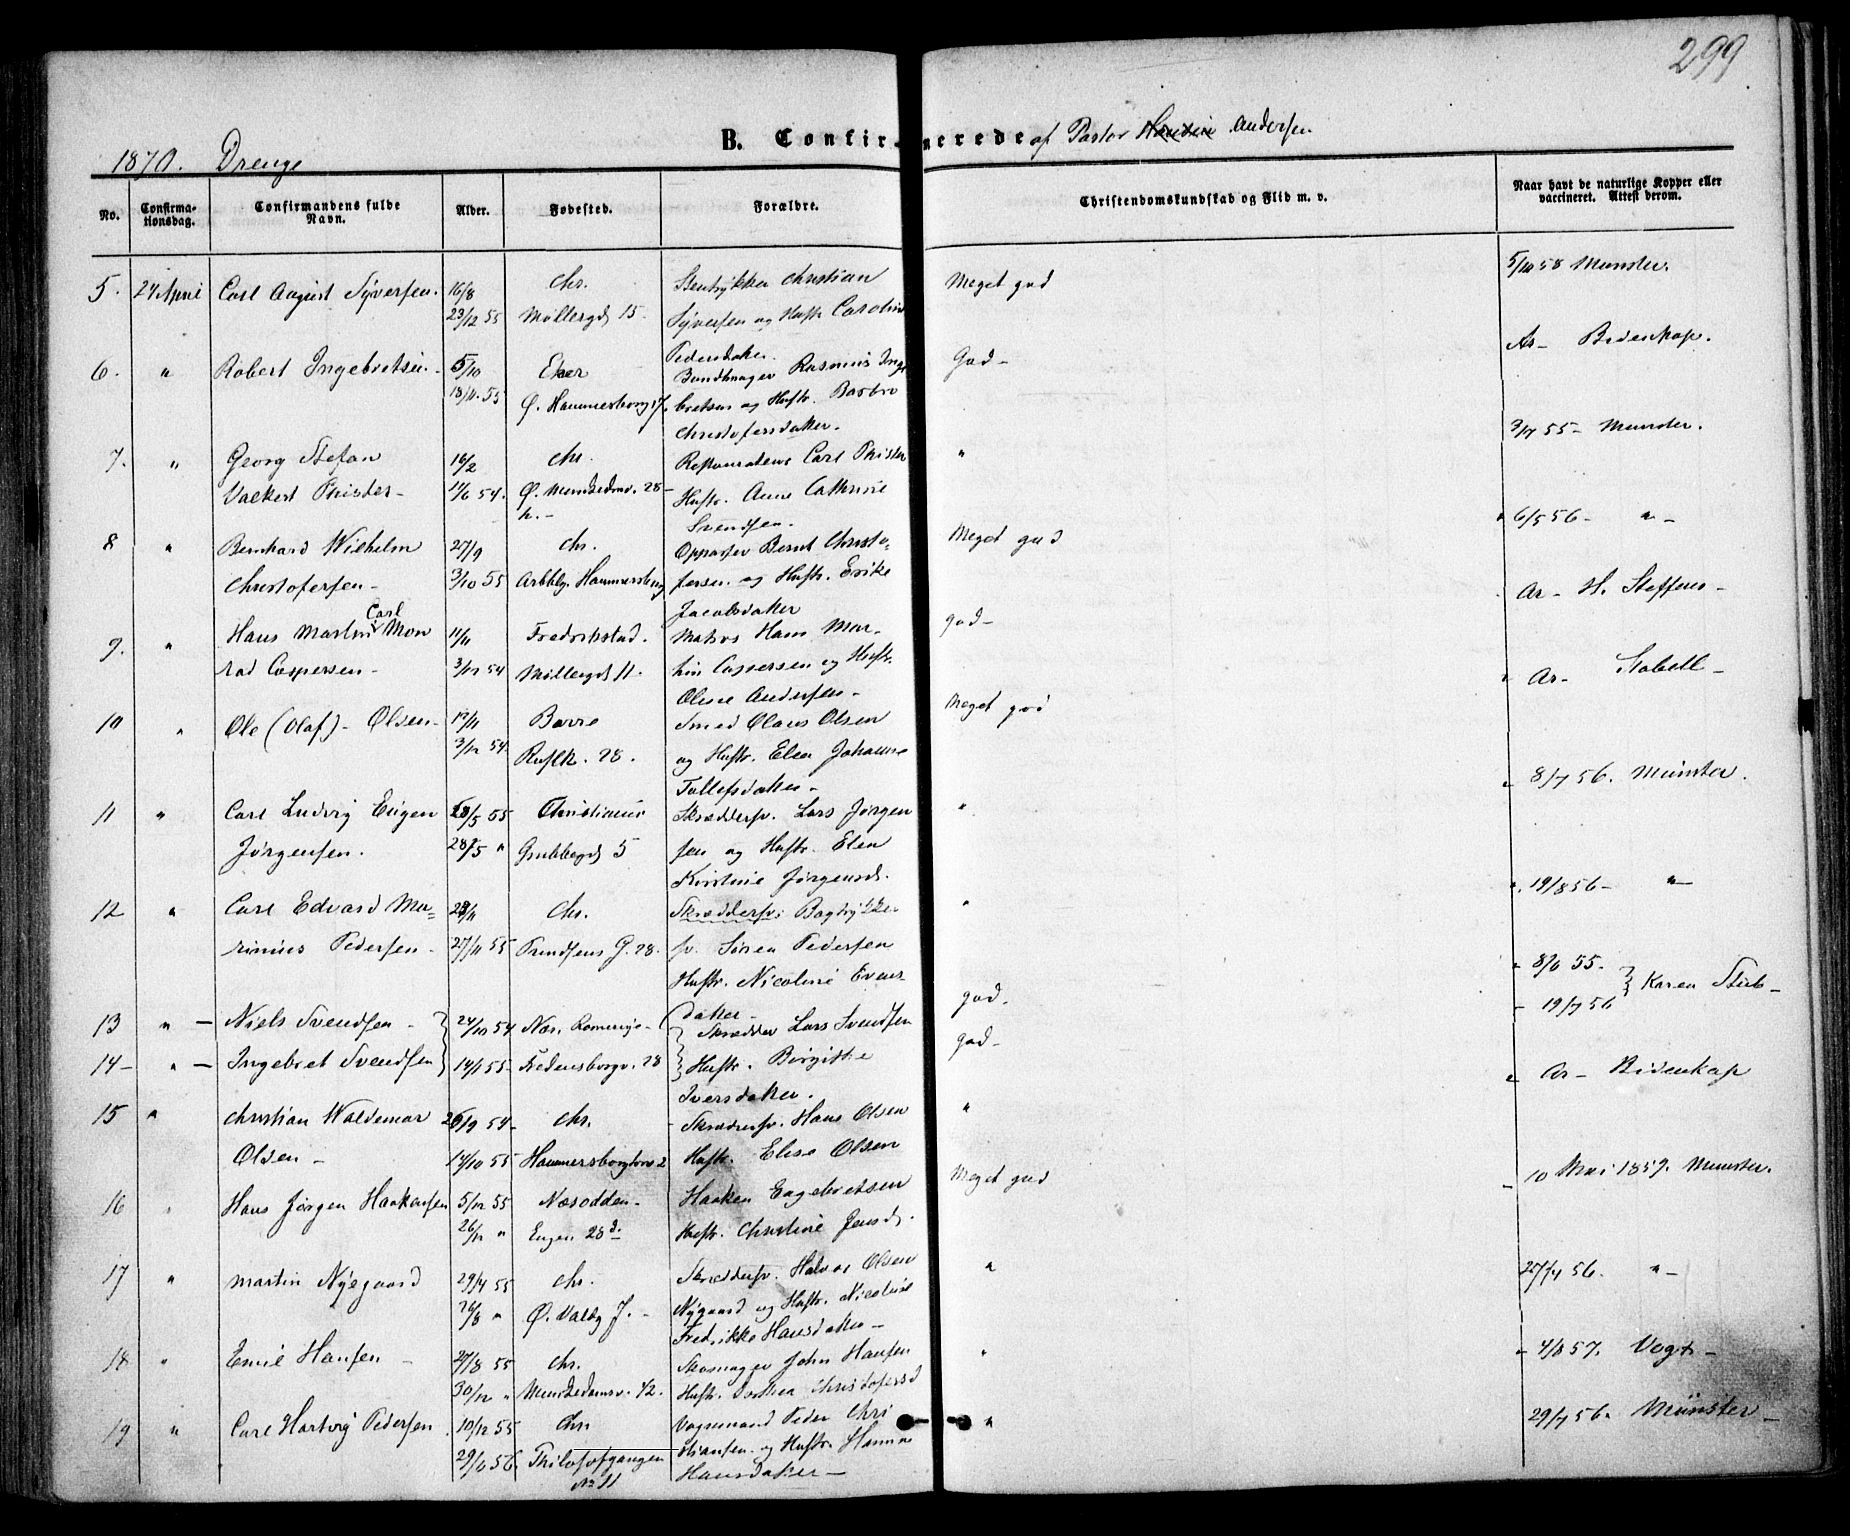 299
1870. Drenge
B. Confirmerede af Pastor Andersen
No.
Confirmationsdag.
Confirmandens fulde Navn.
Alder.
Fødested.
Forældre.
Christendomskundskab og Flid m. v.
Naar havt de naturlige Kopper eller vaccineret. Attest derom.
5. 24 April Carl August Syversen. 16/8 Chr. Stentrykker Christian Meget god 5/10 58 Munster.
23/12 55 Møllergd 15. Syversen og Hustr Caroline
Pedersdatter.
6. " Robert Ingebretsen. 5/10 Eker Bundtmager Rasmus Inge God - Ar- Bidenkap.
18/11 55 Ø. Hammersborg 17. bretsen og Hustr. Barbro
Christofersdatter.
7. " Georg Stefan 16/2 Chr. Restauratør Carl Thister " 3/7 55 - Munster.
Valkert Thister - 11/6 54. Ø. Munkedmv. 28 - Hustr. Anne Cathrine
h. - Svendsen.
8 " Bernhard Wilhelm 27/9 Chr. Oppasser Bernt Christo- Meget god " 6/5 56 - " -
Christofersen - 3/10 55 Arbblg. Hammersborg fersen og Hustr. Erike
Jacobsdatter
9. " Hans Martin Carl Mon 11/11 Fredrikstad. Matros Hans Mar- god - Ar- H. Steffens -
rad Caspersen - 3/12 54 Møllergd 11. tin Caspersen og Hustr.
Oline Andersen -
10 " Ole (Olaf) - Olsen - 12/11 Borre Smed Claus Olsen Meget god " Ar- Stabell -
3/12 54 Ruslk. 28. og Hustr. Elen Johanne
Tollefsdatter -
11 " Carl Ludvig Eugen 23/5 55 Christiania Skræddersv. Lars Jørgen " " 8/7 56. Munster.
Jørgensen. 28/5 " Grubbegd 5 sen og Hustr. Elen
Kirstine Jørgensd.
12 " Carl Edvard Ma- 23/11 Chr. Skræddersv. Bogtrykker " " 19/8 56 - " -
rinius Pedersen - 27/11 55 Prindsens G. 28. sv. Søren Pedersen
Hustr. Nicoline Evens-
datter -
13 " - Niels Svendsen - 24/10 54 Nes. Romerige - Skrædder Lars Svendsen god. " 8/6 55. Karen Stub -
14 - " - Ingebret Svendsen 14/1 55 - Fredensborgv. 28 Hustr. Birgitte god - - 19/7 56
Iversdatter.
15 " Christian Waldemar 26/9 54 - Chr. - Skræddersv. Hans Olsen " " Ar- Bidenkap
Olsen - 14/10 55 Hammersborgtorv 2 Hustr. Elise Olsen
16 " Hans Jørgen Haakensen 5/12 55 Næsodden - Haaken Engebretsen Meget god - 10 Mai 1857. Munster.
26/12 " Engen 28 d. Hustr. Christine Jensd.
17 " Martin Nyegaard 29/4 55 Chr. Skræddersv. Halvor Olsen " 27/4 56. " -
26/8 " Ø. Valby G. - Nygaard og Hustr. Nicoline
Fredrikke Hansdatter -
18 " Emil Hansen - 27/8 55 Chr. Skomager John Hansen " - 4/8 57. Vogt -
30/12 " Munkedamsv. 42. Hustr. Dorthea Christofersd
19 " Carl Hartvig Pedersen 10/12 55 Chr. Vognmand Peder Chri " 29/7 56. Münster -
29/6 56 Thilofofgangen stiansen og Hustr. Hanna
No 11 Hansdatter -